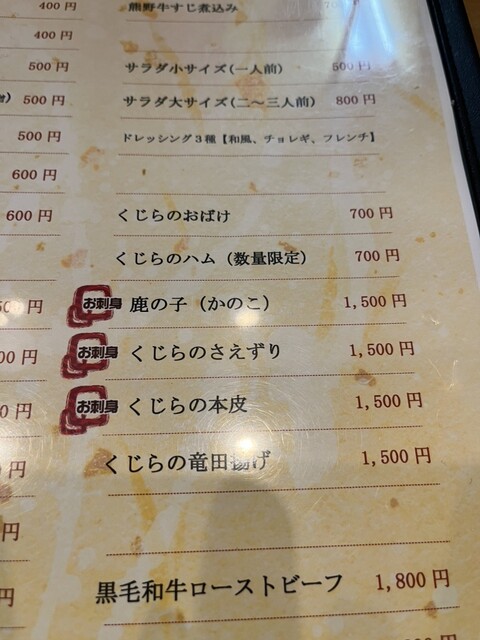 400 円
400 円
500 円
500 円
500 円
600 円
600 円
熊野牛すじ煮込み
サラダ小サイズ(一人前) 500 円
サラダ大サイズ(二～三人前) 800 円
ドレッシング3種【和風、チョレギ、フレンチ】
くじらのおばけ 700 円
くじらのハム（数量限定） 700 円
お刺身 鹿の子（かのこ） 1,500 円
お刺身 くじらのさえずり 1,500 円
お刺身 くじらの本皮 1,500 円
くじらの竜田揚げ 1,500 円
黒毛和牛ローストビーフ 1,800 円